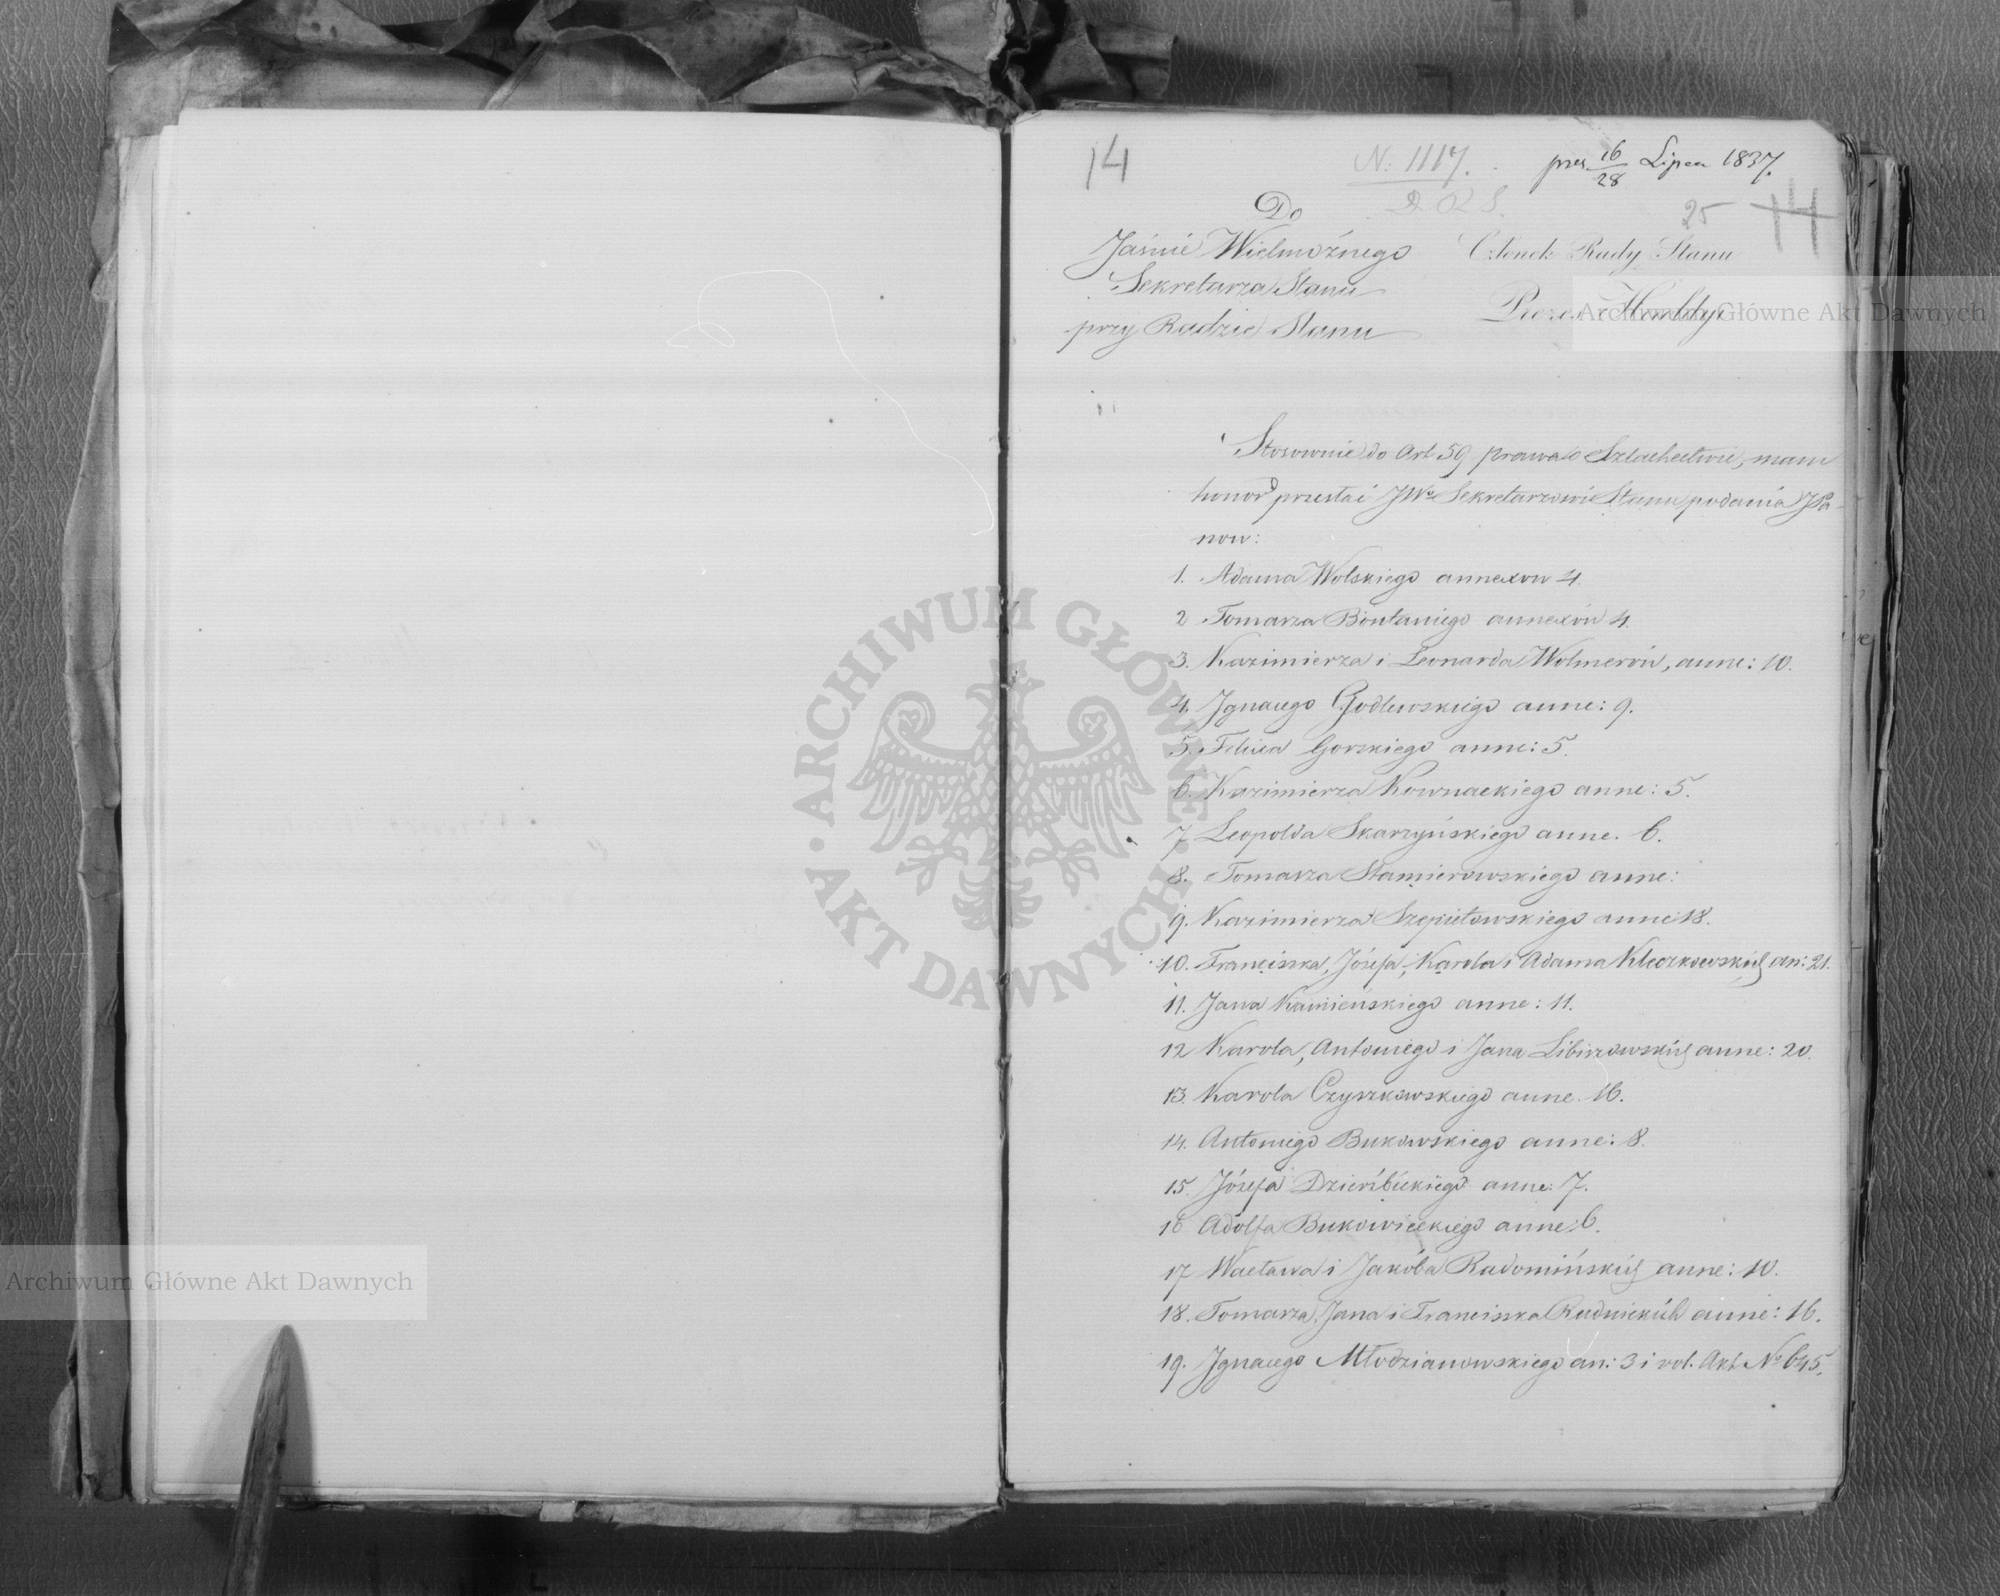 14
N: 1117.
pres 16/28 Lipca 1837.
25
14
Do
Jaśnie Wielmożnego
Sekretarza Stanu
przy Radzie Stanu
Członek Rady Stanu
Prezes Heroldyi
Stosownie do Art 59 prawa o Szlachectwie, mam
honor przesłać JWu Sekretarzowi Stanu podania JPa-
now:
1. Adama Wolskiego annexow 4.
2 Tomasza Bontaniego annexów 4.
3. Kazimierza i Leonarda Wolmerów, anne: 10.
4. Ignacego Godlewskiego anne: 9.
5. Felixa Gorskiego anne: 5.
6. Kazimierza Kownackiego anne: 5.
7 Leopolda Skarzyńskiego anne. 6.
8. Tomasza Stamierowskiego anne:
9. Kazimierza Szepietowskiego anne 18.
10. Franciszka, Józefa, Karola i Adama Kleczkowskich an: 21.
11. Jana Kamieńskiego anne: 11.
12 Karola, Antoniego i Jana Libiszowskich anne: 20.
13. Karola Czyszkowskiego anne. 16.
14. Antoniego Bukowskiego anne: 8.
15. Józefa Dzierzbickiego anne: 7.
16 Adolfa Bukowieckiego anne: 6.
17 Wacława i Jakóba Radomińskich anne: 10.
18. Tomasza, Jana i Franciszka Rudnickich anne: 16.
19. Ignacego Młodzianowskiego an: 3 i vol. Akt No 645.
Archiwum Główne Akt Dawnych
ARCHIWUM GŁÓWNE AKT DAWNYCH
Archiwum Główne Akt Dawnych